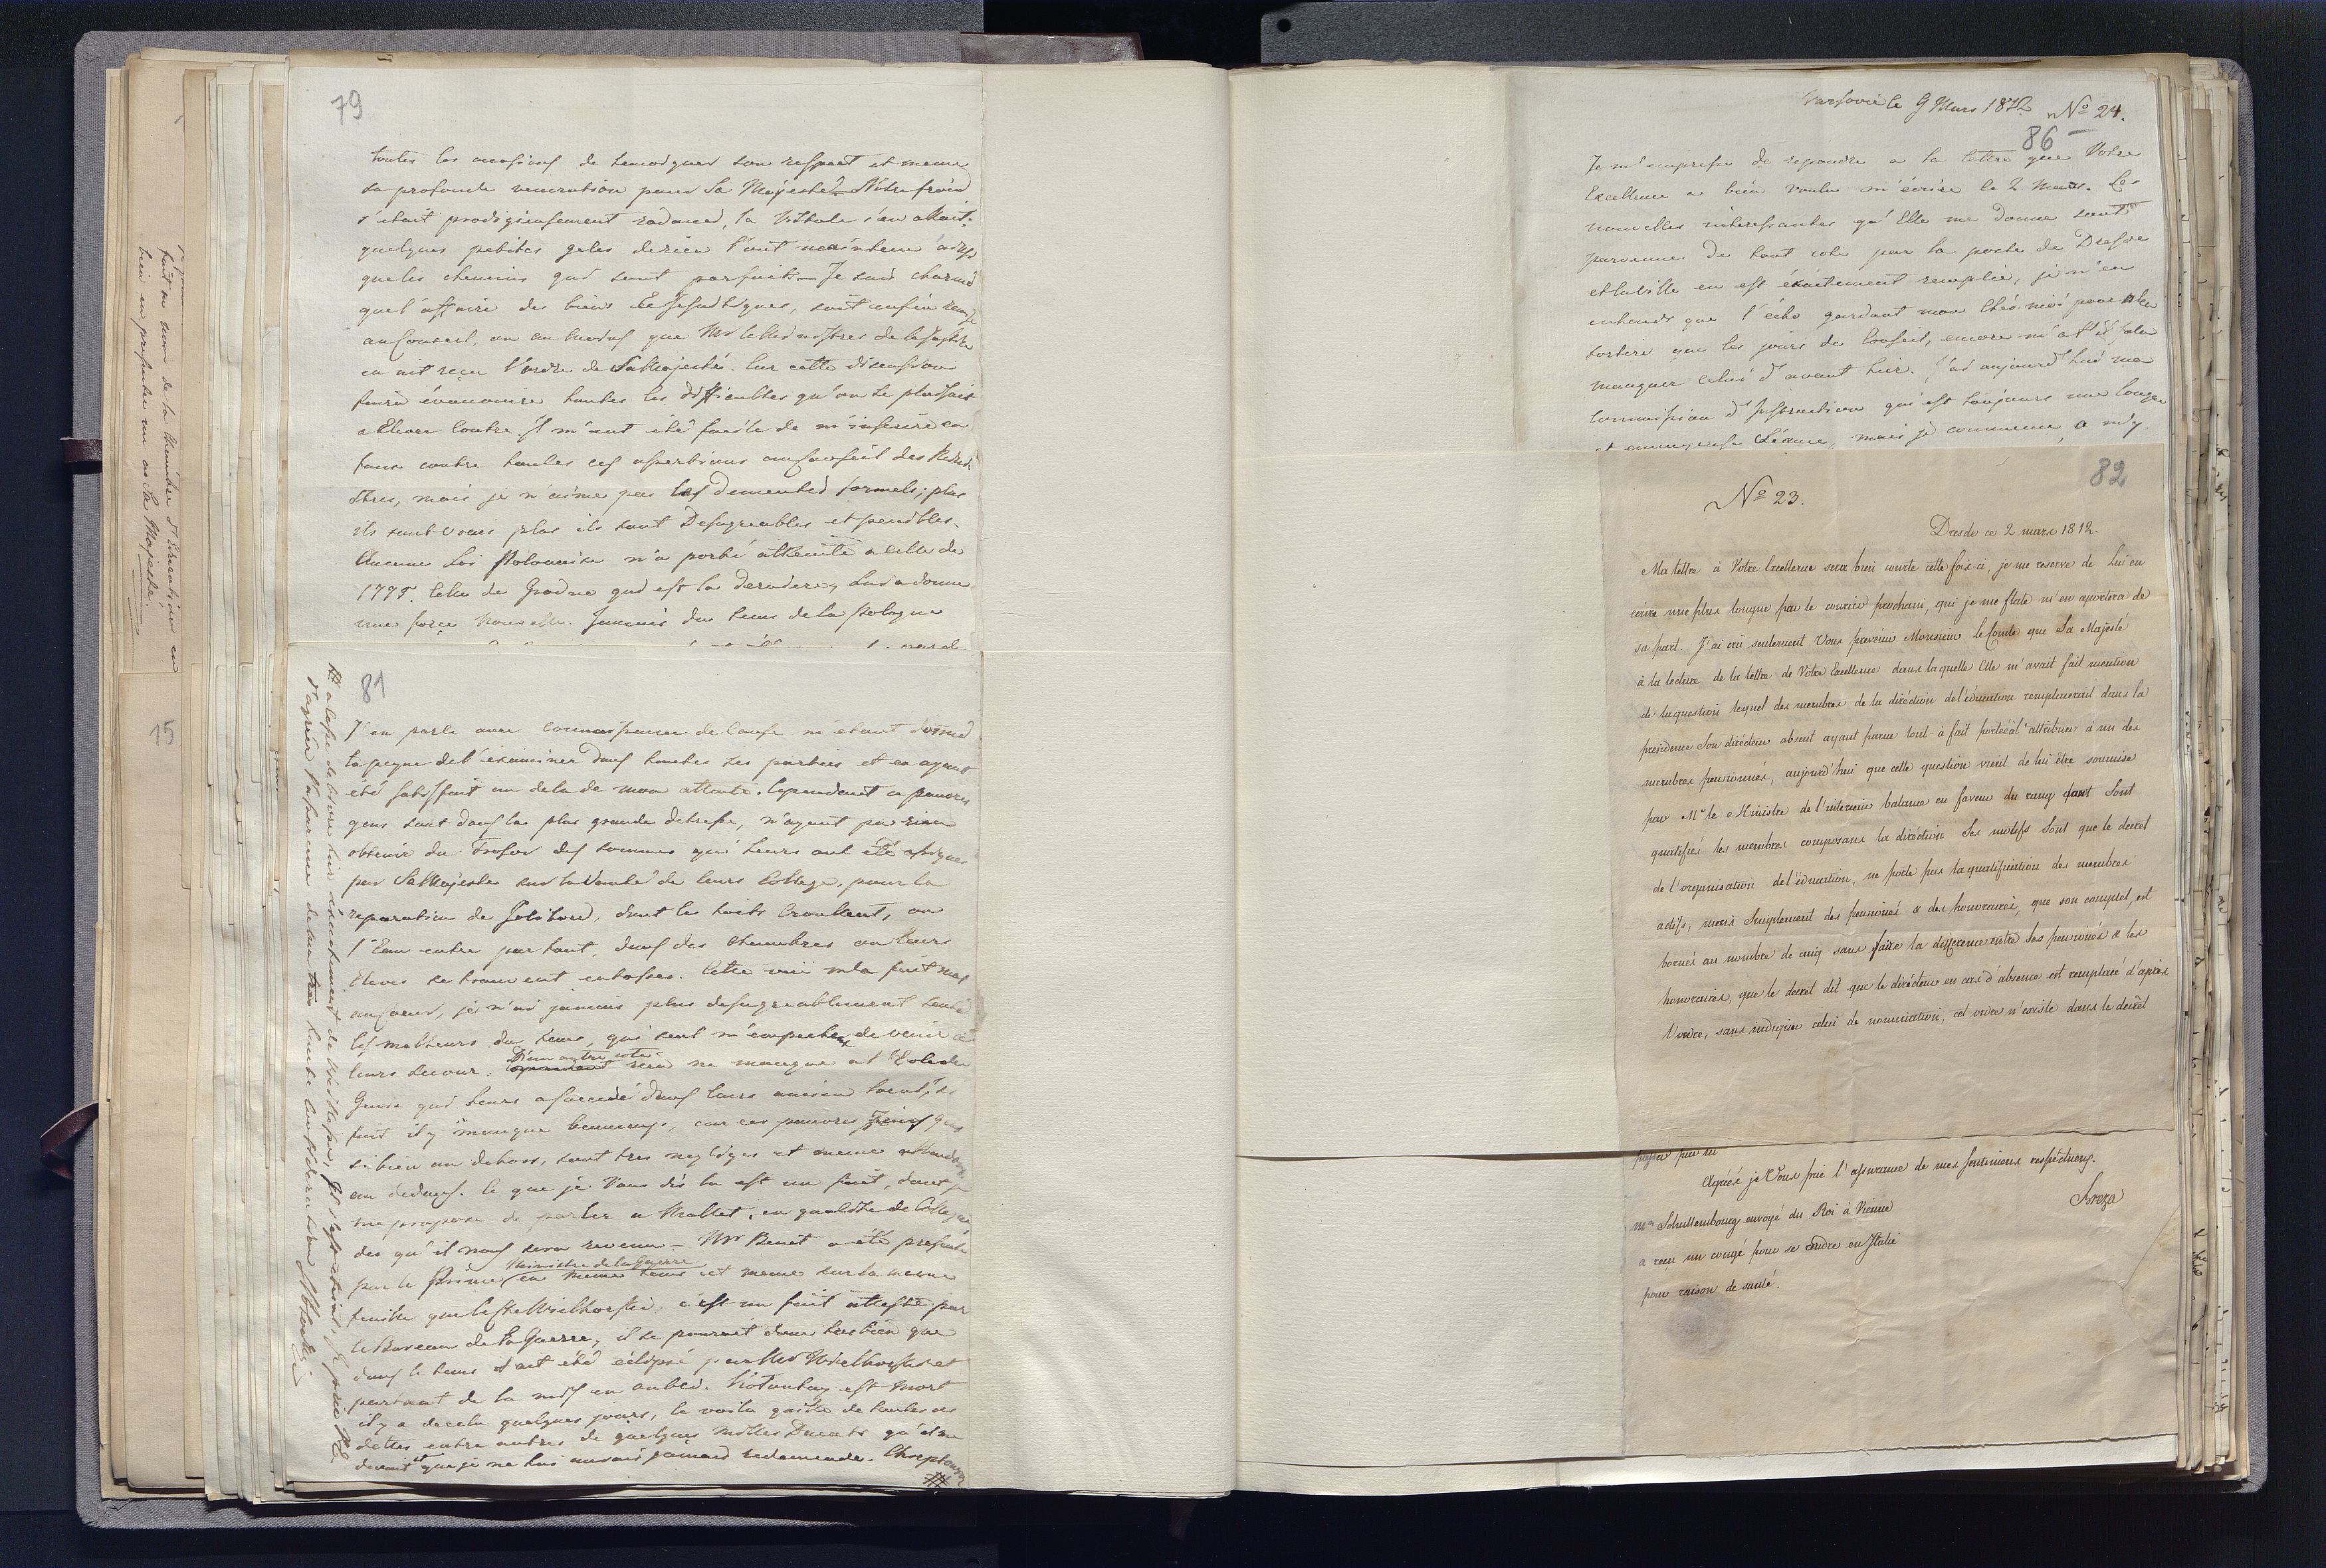 79
toutes les occasions de temoigner son respect et meme
sa profonde veneration pour Sa Majesté. Notre froid
s'etait prodigieusement radouci, la Vistule s'en allait.
quelques petites gelés derien l'ont maintenu ainsy
que les chemins qui sont parfaits. Je suis charmé
que l'affaire des biens Ex Jesuitiques, soit enfin
au Conseil, ou au moins que Mr le Ministre de la Justice
en ait reçu l'ordre de Sa Majesté. Car cette discussion
fera évanouire toutes les difficultes qu'on se plaisait
a Elever Contre. Il m'eut été facile de m'inscrire en
faux contre toutes ces assertions au Conseil des Mini
stres, mais je n'aime pas les Dementis formels; plus
ils sont vrais plus ils sont Desagreables et penibles.
Aucune Loi Polonaise n'a porté atteinte a celle de
1775. Celle de Grodno qui est la derniere, lui a donné
une force Nouvelle. Jamais du tems de la Pologne
81
J'en parle avec connaissance de Cause m'etant donné
la peyne de l'examiner dans toutes ses parties et en ayant
été satisfait au dela de mon attente. Cependant ces pauvres
gens sont dans la plus grande detresse, n'ayant pu rien
obtenir du Tresor des sommes qui leurs ont été assignes
par Sa Majesté sur la Vente de leurs College, pour la
reparation de Jolibord, dont les toits Croullent, ou
l'Eau entre partout, dans des chambres ou leurs
Eleves se trouvent entassés. Cette vuë m'a fait mal
au Coeur, je n'ai jamais plus desagreablement senti
les malheurs du tems, qui sont m'empecher de venir a
leurs secour. D'un autre coté rien ne manque at l'Ecole de
Genie qui leurs a succedé dans leurs ancien local,
fait il y manque beaucoup, car ces pauvres gens
si bien au dehors, sont tres negligés et meme abandon
au dedans. Ce que je Vous dis la est un fait, dont je
me propose de parler a Mallet, en qualité de Collegue,
des qu'il nous sera revenu. Mr Benet a été presenté
par le Prince Ministre de la Guerre en meme tems et meme sur la meme
feuille que le Cte Wielhorski, c'est un fait attesté par
le Bureau de la Guerre, il se pourait donc tres bien que
dans le tems il ait été eclipsé par Mr Wielhorski et
partant de la mis en oubli. est mort
il y a decela quelques jours, le voila quitte de toutes ses
dettes entre autres de quelques milles Ducats qu'il me
devait et que je ne lui aurais jamais redemandé.
d'agréer l'assurance de ma tres haute Consideration
fait au nom de la Chambre d'Education en
bien en presenter un au Sa Majesté.
15
Varsovie le 9 Mars 1812 No 24.
86
Je m'empresse de repondre a la lettre que Votre
Excellence a bien voulu m'écrire le 2 Mars. Les
nouvelles interessantes qu'Elle me donne sont
parvenues de tout coté par la poste de Dresde
et la Ville en est éxactement remplie, je n'en
entends que l'écho gardant mon chés moi pour n'en
sortire que les jours de Conseil, encore m'a t'il falu
manquer celui d'avant hier. J'ai aujourd'hui ma
Commission d'Instruction qui est toujours une longue
et ennuyeuse Séance, mais je commence a m'y
82
No 23.
Dresde ce 2 mars 1812.
Ma lettre à Votre Excellence sera bien courte cette fois-ci, je me reserve de Lui en
écrire une plus longue par le courier prochain, qui je me flate m'en aportera de
sa part. J'ai cru seulement Vous prevenir Monsieur le Comte que Sa Majesté
à la lecture de la lettre de Votre Excellence dans laquelle Elle m'avait fait mention
de la question lequel des membres de la diréction de l'éducation remplacerait dans la
presidence Son directeur absent ayant parue tout-à fait portée à l'attribuer à un des
membres pensionnés, aujourd'hui que cette question vient de lui être soumise
par Mr le Ministre de l'interieur balance en faveur du rang dont Sont
qualifiés les membres composans la diréction. Ses motifs Sont que le decret
de l'organisation de l'éducation, ne porte pas la qualification des membres
actifs, mais Simplement des pensionés & des honoraires, que son complet, est
borné au nombre de cinq sans faire la difference entre les pensionés & les
honoraires, que le decret dit que le directeur en cas d'absence est remplacé d'après
l'ordre, sans indiquer celui de nomination, cet ordre n'existe dans le decret
Agréés je Vous prie l'assurance de mes sentimens respéctueux.
Breza
Mr Schullembourg envoyé du Roi à Vienne
a reçu un congé pour se rendre en Italie
pour raison de santé.